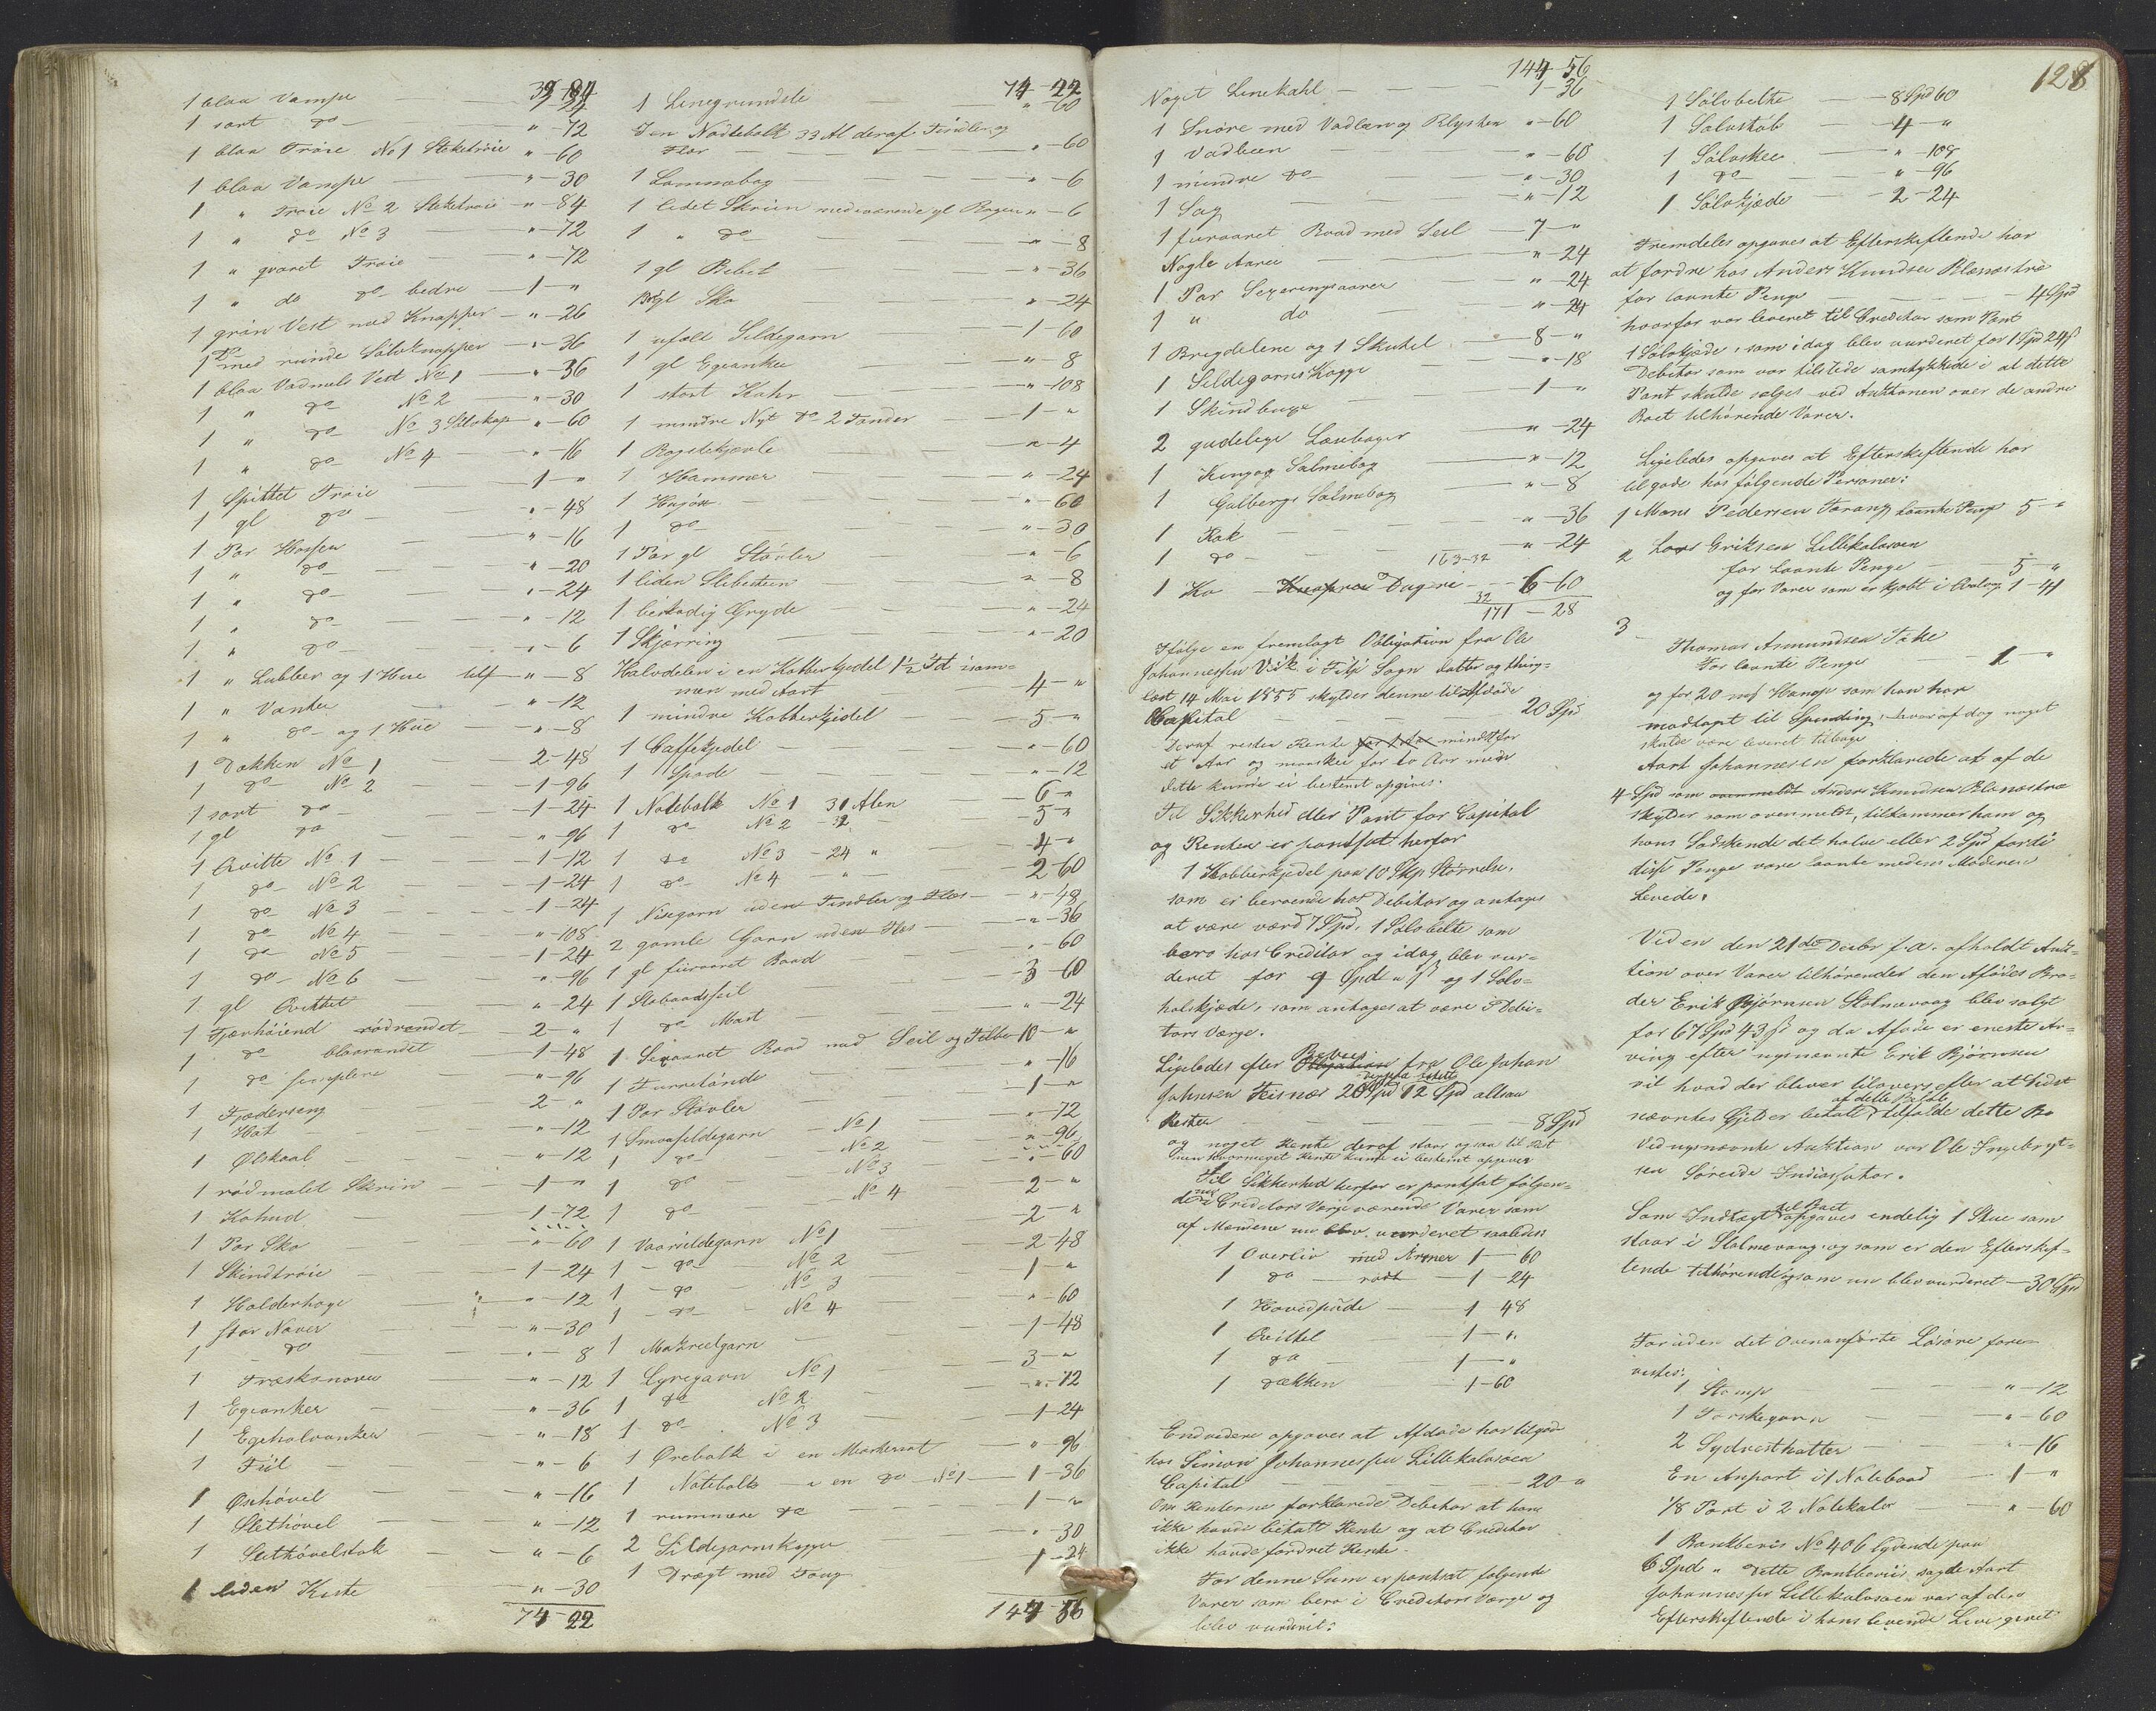 39-84
1 blaa Vampe — "-72
1 sort do — "-72
1 blaa Trøie No 1 Steketrøie "-60
1 blaa Vampe — "-30
1 " Trøie No 2 Steketrøie "-84
1 " do No 3 — "-72
1 " Trøie — "-72
1 " do do bedre — 1-"
1 grøn Vest med Knapper — "-26
1 do med runde Sølvknapper — "-36
1 blaa Vadmels Vest No 1 — "-36
1 " do No 2 — "-30
1 " do No 3 "-60
1 " do No 4 — "-16
1 Spittet Trøie — 1-"
1 gl do — "-48
1 Par Hosser — "-16
1 " do — "-20
1 " do — "-24
1 " do — "-12
1 " do — "-6
1 " Lubber og 1 Hue "-8
1 " Vanter — "-12
1 " do og 1 Hue — "-8
1 Dækken No 1 — 2-48
1 do No 2 — 1-96
1 sort do — 1-24
1 gl do — "-96
1 Qvitte No 1 — 1-12
1 do No 2 — 1-24
1 do No 3 — 1-24
1 do No 4 — "-108
1 do No 5 — 1-24
1 do No 6 — "-96
1 gl Qvittet — "-24
1 Fjærhøiend rødrandet — 2-"
1 do blaarandet — 1-48
1 do simplere — "-96
1 Fjederseng — 2-"
1 Hat — "-12
1 Ølskaal — "-12
1 rødmalet Skrin — 1-"
1 Kohud — 1-72
1 Par Sko — "-60
1 Skindtrøie — 1-24
1 Holderhage — "-12
1 stor Naver — "-30
1 do — "-8
1 Træsknaver — "-12
1 Egeanker — "-36
1 Egehalvanker — "-18
1 Fiil — "-6
1 Øxhøvel — "-16
1 Slethøvel — "-12
1 Slethøvelstok — "-6
1 liden Kiste — "-30
74-22
74-22
1 Linegrundsle — "-60
Den Nodtebolk 33 Al deraf Tindler og
Flær — "-60
1 Lomnebog — "-6
1 lidet Skrin medværende gl Bøger "-6
1 " do — "-8
1 gl Bibel — "-36
1 Par gl Sko — "-24
1 ufælt Sildegarn — 1-60
1 gl Egeanker — "-8
1 stort Kahr — "-108
1 mindre Nyt do 2 Tønder — 1-"
1 Bagstekjævle — "-4
1 Hammer — "-24
1 — "-60
1 do — "-30
1 Par gl Støvler — "-6
1 liden Slibesteen — "-8
1 Gryde — "-24
1 Skjærring — "-20
Halvdelen i en Kobberkjedel 1½ Td isam-
men med Aart — 4-"
1 mindre Kobberkjedel — 5-"
1 Caffekjedel — "-60
1 Spade — "-12
1 Notebolk No 1 31 Alen — 6-"
1 do No 2 - 32 — 5-"
1 do No 3 - 24 " — 4-"
1 do No 4 - " — 2-60
1 Nisegarn uden Tindler og Flos — "-48
2 gamle Garn uden Flos — "-36
1 gl fiiraaret Baad — "-60
1 Storbaadsseil — 3-60
1 do Mast — "-24
1 Sexaaret Baad med Seil og Tilbe 10-"
1 Turretønde — "-16
1 Par Støvler — 1-"
1 Smaasildegarn — No 1 — "-72
1 do — No 2 — "-96
1 do — No 3 — "-60
1 do — No 4 — 2-"
1 Vaarsildegarn No 1 — 2-48
1 do No 2 — 1-"
1 do No 3 — "-60
1 do No 4 — 1-48
1 Makreelgarn — 3-"
1 Lyregarn No 1 — "-72
1 do No 2 — 1-24
1 do No 3 — "-96
1 Ørebolk i en Mærkenot — 1-36
1 Notebolk i en do No 1 — 1-"
1 do
2 Sildegarnskagger — "-30
1 Drægt med Toug — 1-24
144-56
144-56
Noget Linekahl — 1-36
1 Snøre med Vadlæn og Blysteen "-60
1 Vadbeen — "-60
1 mindre do — "-30
1 Sag — "-12
1 fiiraaret Baad med Seil — 7-"
Nogle Aarer — "-24
1 Par Sexeringsaarer — "-24
1 " do — "-24
1 Brugdelene og 1 Skutel — 8-"
1 Sildegarns Kagge — "-18
1 Skindbuxe — 1-"
2 gudelige Læsebøger — "-24
1 Kingos Salmebog — "-12
1 Gulbergs Salmebog — "-8
1 Kak — "-36
1 do — "-24
163-32
1 Ko Dagrei — 6-60
171-28
Ifølge en fremlagt Obligation fra Ole
Johannessen Vik i Fitje Sogn datter og thing-
læst 14 Mai 1855 skylder denne til Afdøde
Capital — 20 Spd
Deraf restere Rente mindst for
et Aar og maaskee for to Aar men
dette kunde ei bestemt opgives.
Til Sikkerhed eller Pant for Capital
og Renter er pantsat herfor
1 Kobberkjedel paa 10 Skp Størrelse,
som er beroende hos Debitor og antages
at være værd 7 Spd, 1 Sølvbelte som
bero hos Creditor og idag blev vur-
deret for 9 Spd " ß og 1 Sølv-
halskjæde, som antages at være i Debi-
tors Værge.
Ligeledes efter Beviis fra Ole Johan
Johnsen Teisnæs 20 Spd derpaa betalt 12 Spd altsaa
Rester — 8 Spd
og noget Rente deraf staar ogsaa til Rest
men hvormeget Rente kunde ei bestemt opgives
Til Sikkerhed herfor er pantsat følgen-
de i Creditors Værge værende Varer som
af Mændene nu blev vurderet saaledes
1 Overliv med Ærmer 1-60
1 do — rødt — 1-24
1 Hovedpude — 1-48
1 Qvittel — 1-"
1 do — 1-"
1 Dækken — 1-60
Endvidere opgaves at Afdøde har tilgode
hos Simon Johannessen Lillekalsøen
Capital — 20-"
Om Renterne forklarede Debitor at han
ikke havde betalt Rente og at Creditor
ikke havde fordret Rente.
For denne Sum er pantsat følgende
Varer som bero i Creditors Værge og
blev vurderet:
128
1 Sølvbelte — 8 Spd 60
1 Sølvstøb — 4-"
1 Sølvskee — "-108
1 do — "-96
1 Sølvkjæde — 2-24
Fremdeles opgaves at Efterskiftende har
at fordre hos Anders Knudsen Blænæstræ
for laante Penge — 4 Spd
hvorfor var leveret til Creditor som Pant
1 Sølvkjæde, som idag blev vurderet for 1 Spd 24 ß
Debitor som var tilstede samtykkede i at dette
Pant skulde sælges ved Auktionen over de andre
Boet tilhørende Varer.
Ligeledes opgaves at Efterskiftende har
tilgode hos følgende Personer:
1 Mons Pedersen Tarang laante Penge 5-"
2 Lars Eriksen Lillekalsøen
for laante Penge — 5-"
og for Varer som er kjøbt i Auktion 1-41
3 Thomas Asmundsen Take
For laante Penge — 1-"
og for 20 Hamp som han har
modtaget til Spinding, hvoraf dog noget
skulde være leveret tilbage
Aart Johannessen forklarede at af de
4 Spd som Anders Knudsen Blænæstræ
skylder som ovenmeldt, tilkommer ham og
hans Sødskende det halve eller 2 Spd fordi
disse Penge vare laante medens Moderen
levede.
Ved en den 21de Decbr f.a. afholdt Auk-
tion over Varer tilhørende den Afdødes Bro-
der Erik Bjørnsen Stolmevaag blev solgt
for 67 Spd 43 ß og da Afdøde er eneste Ar-
ving efter nysnævnte Erik Bjørnsen
vil hvad der bliver tilovers efter at sidst
nævntes Gjeld er betalt af dette Beløb tilfalde dette Bo
Ved nysnævnte Auktion var Ole Ingebrygt-
sen Søreide Indkassator.
Som Indtægt til Boet opgaves endelig 1 Stue som
staar i Stolmevaag, og som er den Efterskif-
tende tilhørende, som nu blev vurderet — 30 Spd
Foruden det Ovenanførte Løsøre fore-
vistes:
1 Stamp — "-12
1 Torskegarn — "-60
2 Sydvesthatter — "-16
En Anpart i 1 Notebaad — 1-"
1/8 Part i 2 Notekaler — "-60
1 Bankbevis No 406 lydende paa
6 Spd " Dette Bankbeviis sagde Aart
Johannessen Lillekalsøen var af den
Efterskiftende i hans levende Live givet